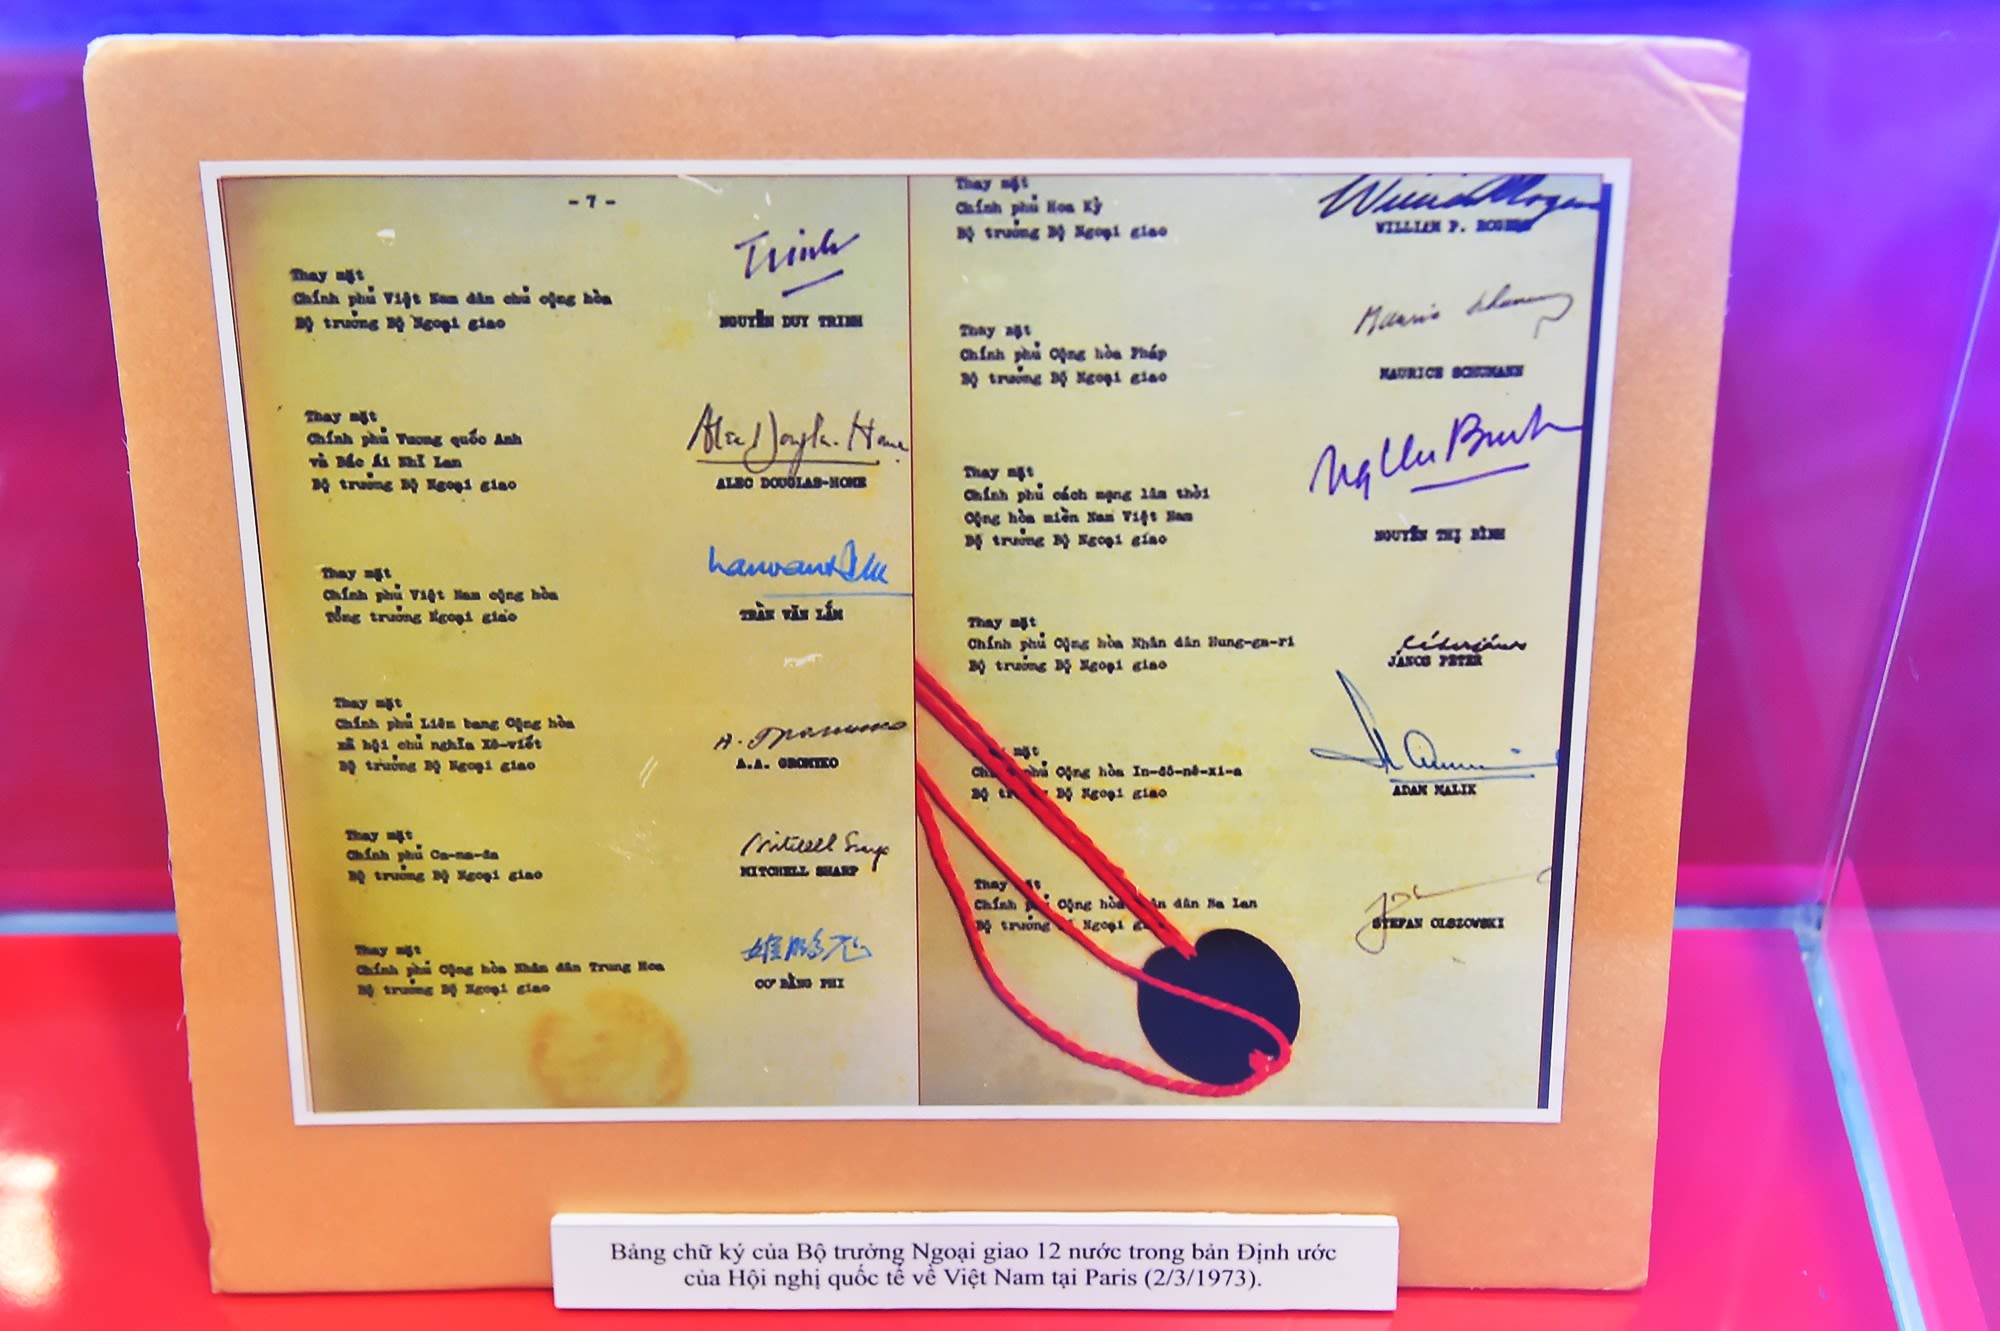 - 7 -
Trinh
Thay mặt
Chính phủ Việt Nam dân chủ cộng hòa
Bộ trưởng Bộ Ngoại giao
NGUYỄN DUY TRINH
Thay mặt
Chính phủ Vương quốc Anh
và Bắc Ái Nhĩ Lan
Bộ trưởng Bộ Ngoại giao
Alec Douglas-Home
ALEC DOUGLAS-HOME
Thay mặt
Chính phủ Việt Nam cộng hòa
Tổng trưởng Ngoại giao
TRẦN VĂN LẮM
Thay mặt
Chính phủ Liên bang Cộng hòa
xã hội chủ nghĩa Xô-viết
Bộ trưởng Bộ Ngoại giao
A.A. GROMYKO
Thay mặt
Chính phủ Ca-na-đa
Bộ trưởng Bộ Ngoại giao
Mitchell Sharp
MITCHELL SHARP
Thay mặt
Chính phủ Cộng hòa Nhân dân Trung Hoa
Bộ trưởng Bộ Ngoại giao
姬鵬飞
CƠ BẰNG PHI
Thay mặt
Chính phủ Hoa Kỳ
Bộ trưởng Bộ Ngoại giao
WILLIAM P. ROGERS
Thay mặt
Chính phủ Cộng hòa Pháp
Bộ trưởng Bộ Ngoại giao
MAURICE SCHUMANN
Thay mặt
Chính phủ cách mạng lâm thời
Cộng hòa miền Nam Việt Nam
Bộ trưởng Bộ Ngoại giao
NGUYỄN THỊ BÌNH
Thay mặt
Chính phủ Cộng hòa Nhân dân Hung-ga-ri
Bộ trưởng Bộ Ngoại giao
JANOS PETER
mặt
phủ Cộng hòa In-đô-nê-xi-a
Bộ Bộ Ngoại giao
ADAM MALIK
Thay
Chính Cộng hòa dân Ba Lan
Bộ trưởng Ngoại
STEFAN OLSZOWSKI
Bảng chữ ký của Bộ trưởng Ngoại giao 12 nước trong bản Định ước
của Hội nghị quốc tế về Việt Nam tại Paris (2/3/1973).